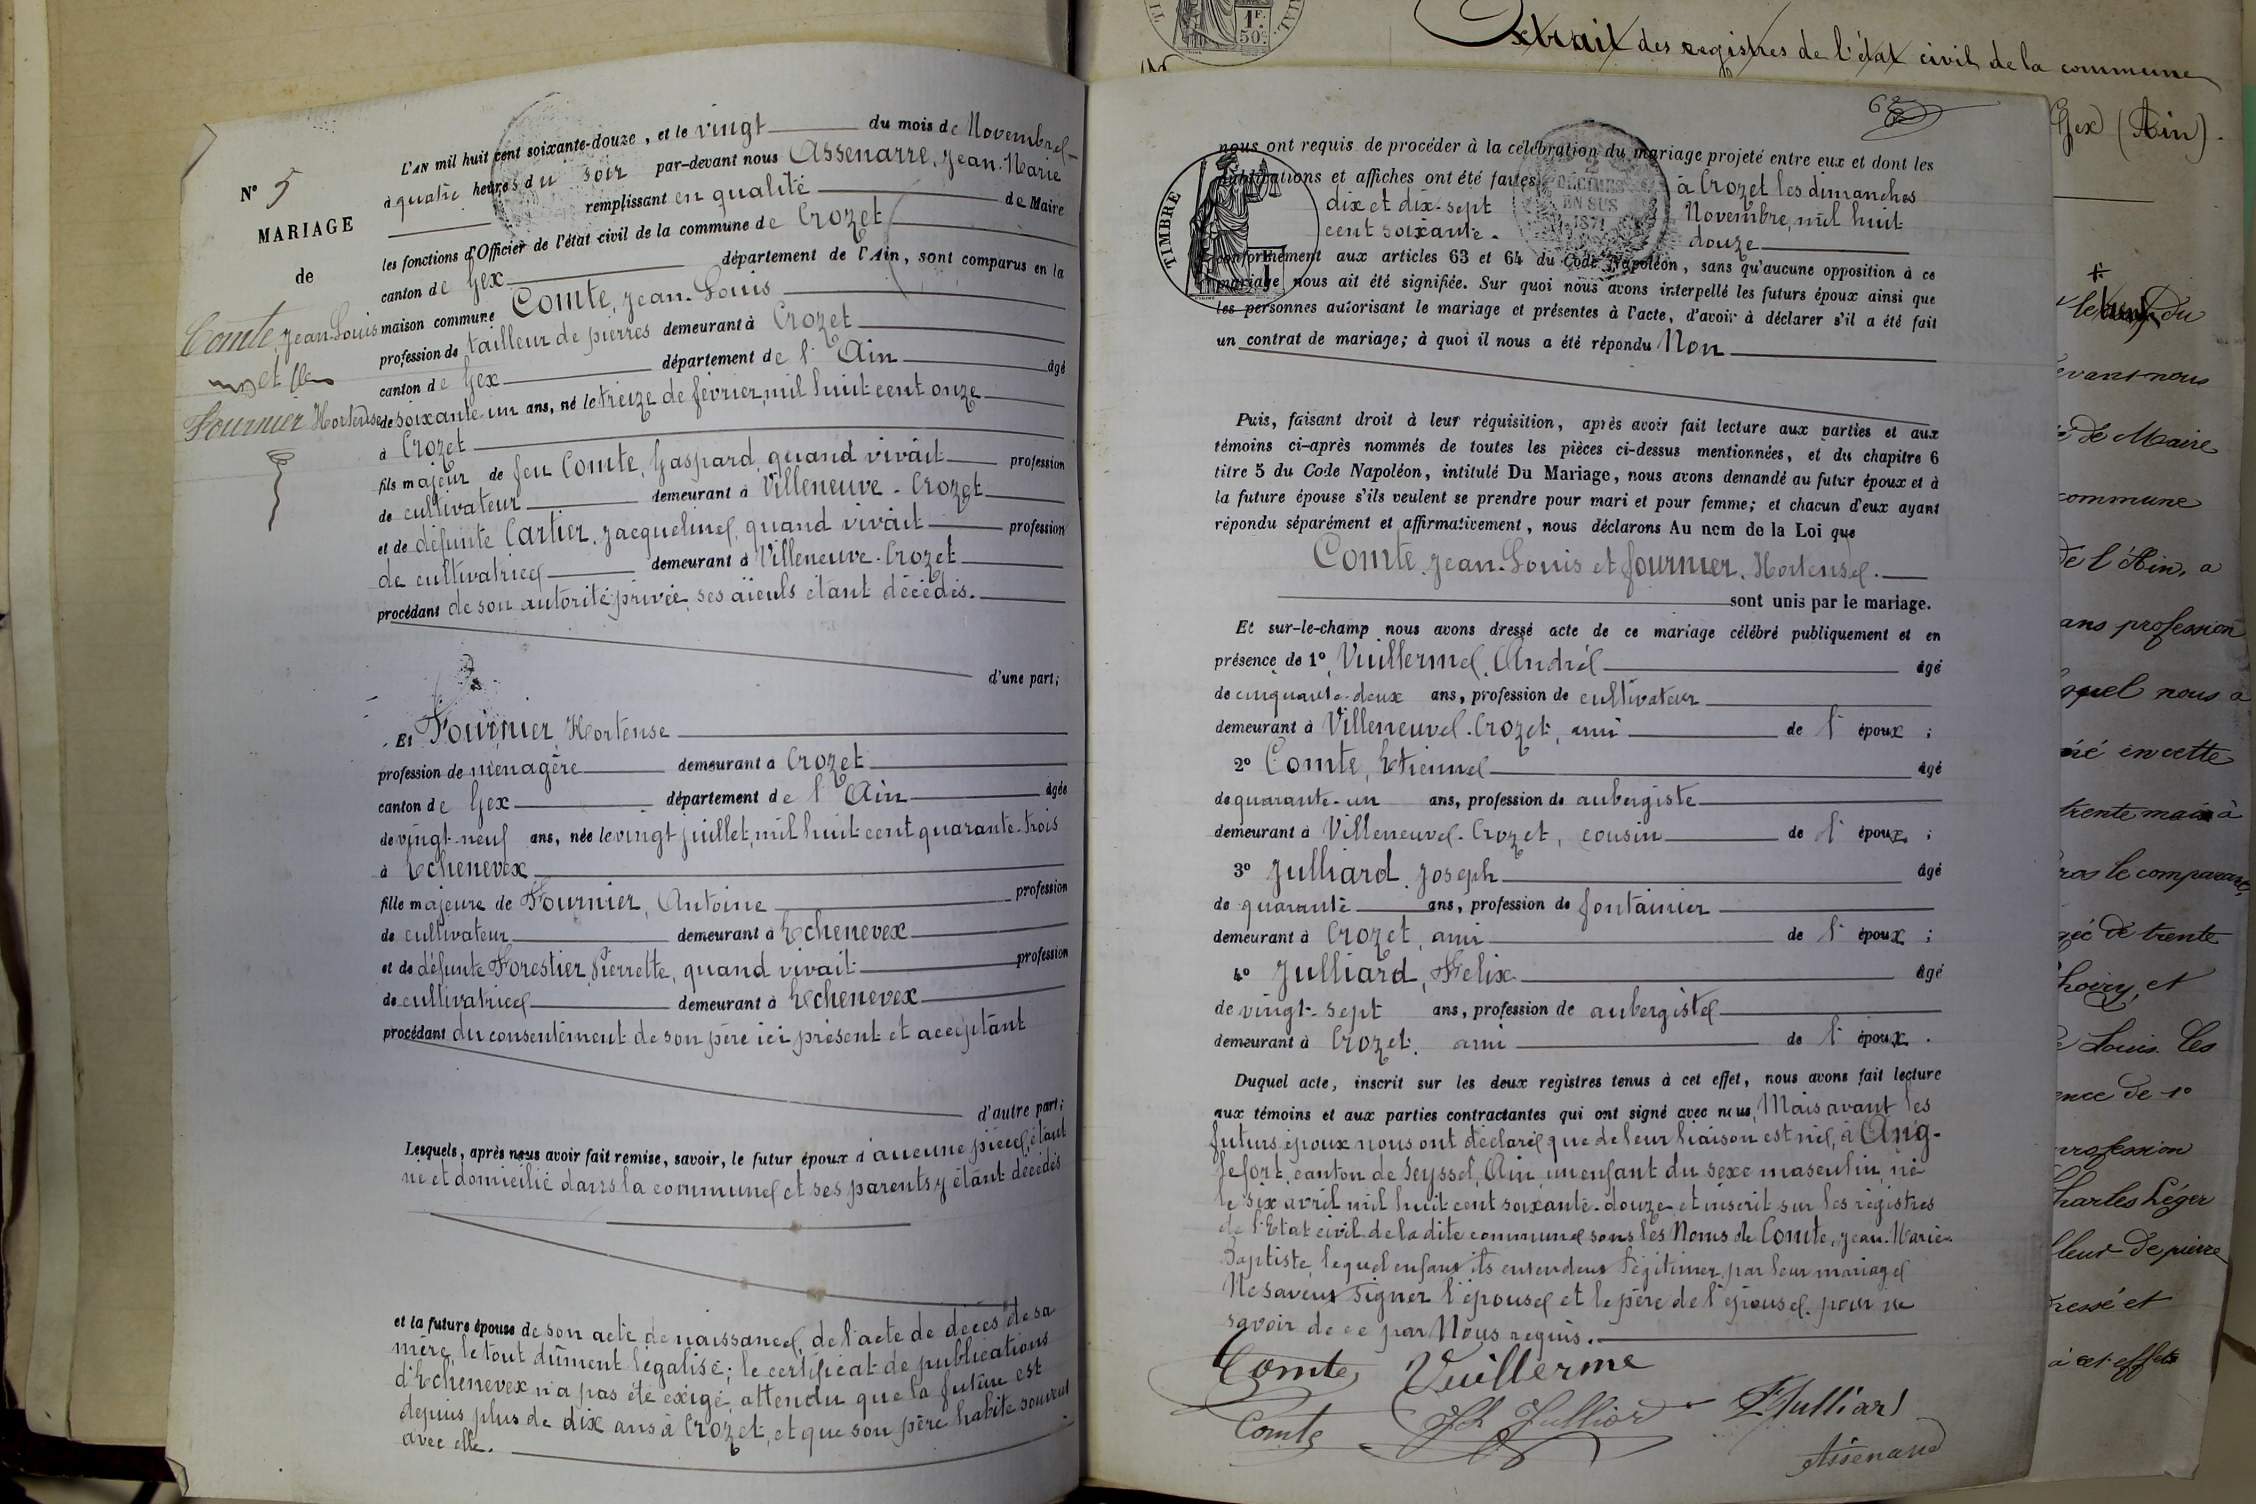 N° 5
MARIAGE
de
Comte, Jean-Louis
et
Fournier Hortense
L'AN mil huit cent soixante-douze, et le vingt du mois de Novembre
à quatre heures du soir par-devant nous Assenarre, Jean-Marie
remplissant en qualité de Maire
les fonctions d'Officier de l'état civil de la commune de Crozet
canton de Gex département de l'Ain, sont comparus en la
maison commune Comte, Jean-Louis
profession de tailleur de pierres demeurant à Crozet
canton de Gex département de l'Ain âgé
de soixante-un ans, né le treize de février, mil huit cent onze
à Crozet
fils majeur de feu Comte, Gaspard, quand vivait profession
de cultivateur demeurant à Villeneuve-Crozet
et de défunte Cartier, Jacqueline, quand vivait profession
de cultivatrice demeurant à Villeneuve-Crozet
procédant de son autorité privée, ses aïeuls étant décédés.
d'une part;
Et Fournier, Hortense
profession de ménagère demeurant à Crozet
canton de Gex département de l'Ain âgée
de vingt-neuf ans, née le vingt juillet, mil huit cent quarante-trois
à Echenevex
fille majeure de Fournier, Antoine profession
de cultivateur demeurant à Echenevex
et de défunte Forestier, Pierrette, quand vivait profession
de cultivatrice demeurant à Echenevex
procédant du consentement de son père ici présent et acceptant
d'autre part;
Lesquels, après nous avoir fait remise, savoir, le futur époux d'aucune pièce, étant
né et domicilié dans la commune et ses parents y étant décédés
et la future épouse de son acte de naissance, de l'acte de décès de sa
mère, le tout dûment légalisé; le certificat de publications
d'Echenevex n'a pas été exigé, attendu que la future est
depuis plus de dix ans à Crozet, et que son père habite souvent
avec elle.
1F. 50c.
62
TIMBRE
2 DÉCIMES EN SUS 1871
nous ont requis de procéder à la célébration du mariage projeté entre eux et dont les
publications et affiches ont été faites à Crozet les dimanches
dix et dix-sept Novembre, mil huit
cent soixante-douze
conformément aux articles 63 et 64 du Code Napoléon, sans qu'aucune opposition à ce
mariage nous ait été signifiée. Sur quoi nous avons interpellé les futurs époux ainsi que
les personnes autorisant le mariage et présentes à l'acte, d'avoir à déclarer s'il a été fait
un contrat de mariage; à quoi il nous a été répondu Non
Puis, faisant droit à leur réquisition, après avoir fait lecture aux parties et aux
témoins ci-après nommés de toutes les pièces ci-dessus mentionnées, et du chapitre 6
titre 5 du Code Napoléon, intitulé Du Mariage, nous avons demandé au futur époux et à
la future épouse s'ils veulent se prendre pour mari et pour femme; et chacun d'eux ayant
répondu séparément et affirmativement, nous déclarons Au nom de la Loi que
Comte, Jean-Louis et Fournier, Hortense.
sont unis par le mariage.
Et sur-le-champ nous avons dressé acte de ce mariage célébré publiquement et en
présence de 1° Vuillerme, André âgé
de cinquante-deux ans, profession de cultivateur
demeurant à Villeneuve-Crozet, ami de l'époux;
2° Comte, Etienne âgé
de quarante-un ans, profession de aubergiste
demeurant à Villeneuve-Crozet, cousin de l'époux;
3° Julliard, Joseph âgé
de quarante ans, profession de fontainier
demeurant à Crozet, ami de l'époux;
4° Julliard, Félix âgé
de vingt-sept ans, profession de aubergiste
demeurant à Crozet, ami de l'époux.
Duquel acte, inscrit sur les deux registres tenus à cet effet, nous avons fait lecture
aux témoins et aux parties contractantes qui ont signé avec nous, Mais avant les
futurs époux nous ont déclaré que de leur liaison est né, à Ang-
lefort, canton de Seyssel, Ain, un enfant du sexe masculin, né
le six avril mil huit cent soixante-douze et inscrit sur les registres
de l'Etat civil de la dite commune sous les Noms de Comte, Jean-Marie-
Baptiste, lequel enfant ils entendent légitimer par leur mariage
Ne savent signer l'épouse et le père de l'épouse pour ne
savoir de ce par Nous requis.
Comte Vuillerme
Comte Jh Julliard F Julliard
Assenarre
Extrait des registres de l'état civil de la commune
Gex (Ain).
le du
evant nous
de Maire
commune
de l'Ain, a
ans profession
quel nous a
né en cette
trente mai à
ros le comparant,
gée de trente
Choiry, et
Louis. Les
ence de 1°
profession
Charles Léger
lleur de pierre
ressé et
à cet effet